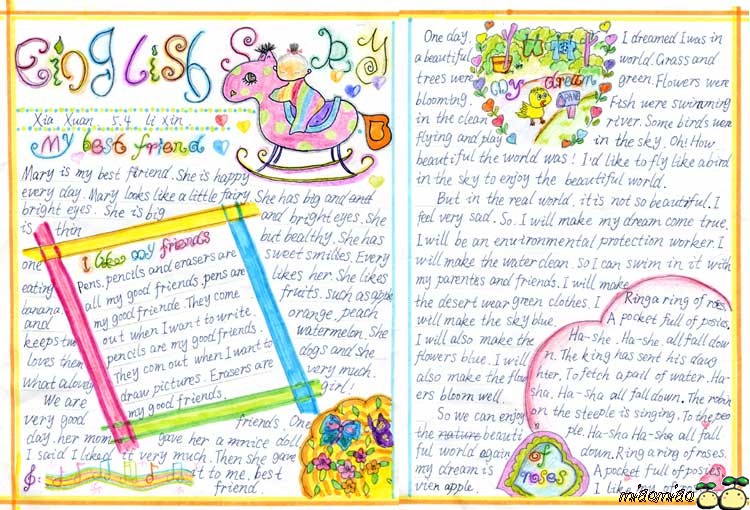 English Sky
Xia Xuan 5.4 Li Xin
My best friend
Mary is my best friend. She is happy
every day. Mary looks like a little fairy. She has big and and
bright eyes. She is big and bright eyes. She
is thin but healthy. She has
sweet smiles. Every
one likes her. She likes
eating fruits. such as apple
banana. orange. peach
and watermelon. She
keeps two dogs and she
loves them very much.
what a lovely girl!
We are friends. One
very good
day. her mom gave her a mnice doll
I said I liked it very much. Then she gave
it to me. best
friend.
I like my friends
Pens, pencils and erasers are
all my good friends. pens are
my good friende. They come
out when I want to write.
pencils are my good friends.
They com out when I want to
draw pictures. Erasers are
my good friends.
My dream
One day, I dreamed I was in
a beautiful world. Grass and
trees were green. Flowers were
blooming. Fish were swimming
in the clean river. Some birds were
flying and play in the sky. Oh! How
beautiful the world was! I'd like to fly like a bird
in the sky to enjoy the beautiful world.
But in the real world. it is not so beautiful. I
feel very sad. So. I will make my dream come true.
I will be an environmental protection worker. I
will make the water clean. So I can swim in it with
my parentes and friends. I will make
the desert wear green clothes. I
will make the sky blue.
I will also make the
flowers blue. I will
also make the flow
ers bloom well.
So we can enjoy
the nature beauti
ful world again
my dream is
vien apple.
Ring a ring of roses.
A pocket full of posies.
Ha-she. Ha-she. all fall dow
n. The king has sent his daug
hter. To fetch a pail of water. Ha-
sha. Ha-sha all fall down. The robin
on the steeple is singing. To the peo
ple. Ha-sha Ha-sha all fall
down. Ring a ring of roses.
A pocket full of posies
I like
of roses
miaomiao